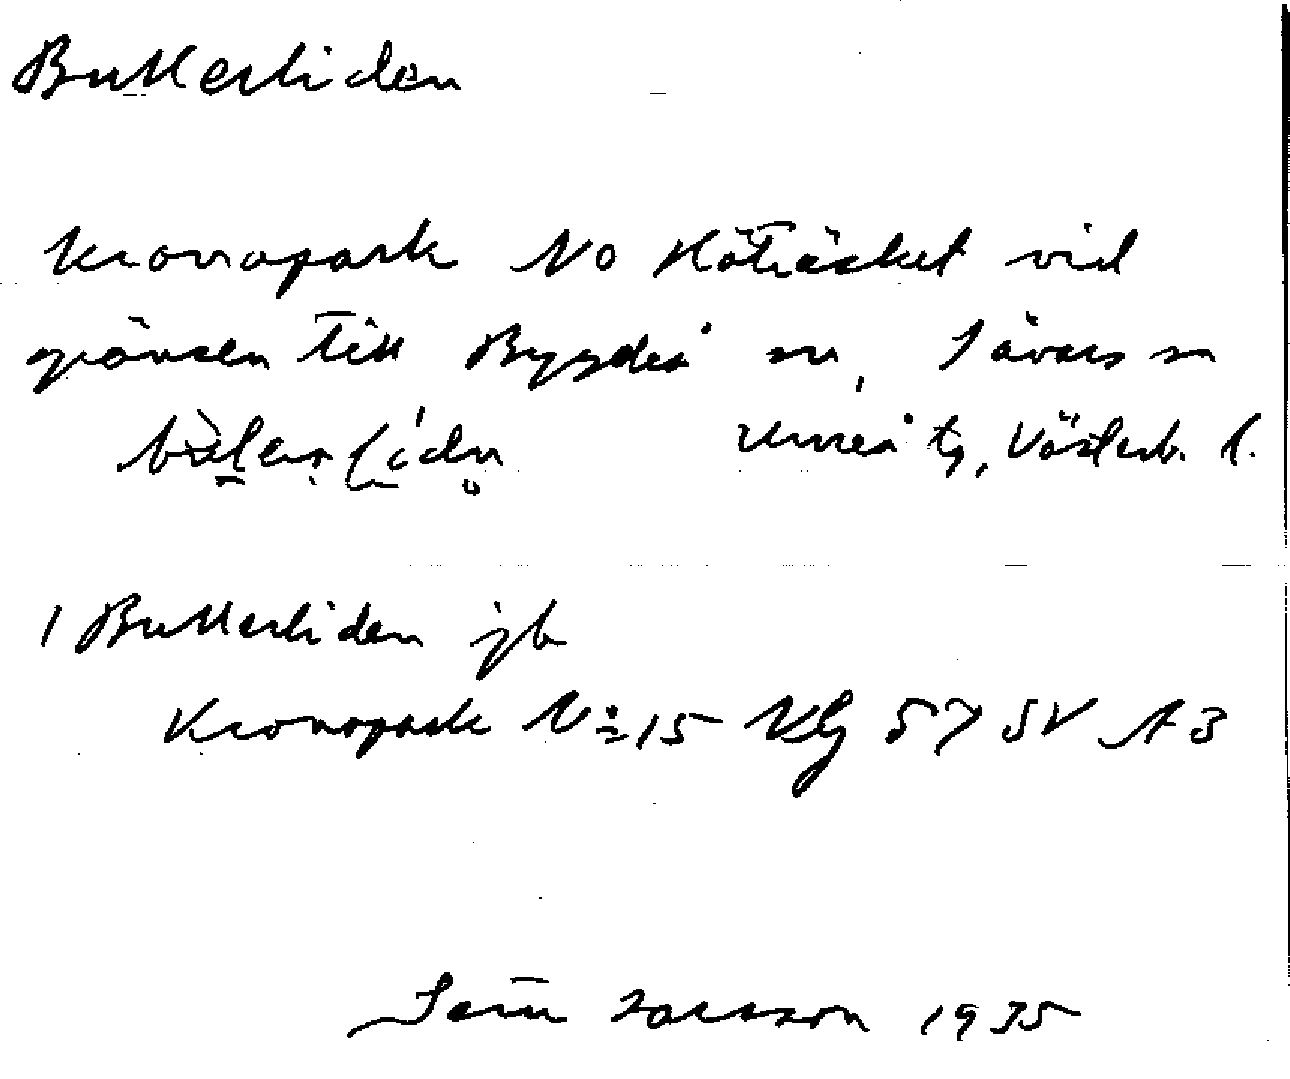 Butterliden
Kronopark NO Hötjäsket vid
gränsen till Bygdeå sn, Sävars sn
Umeå tg, Västerb. l.
1 Butterliden jb
Kronopark No 15 Kbg 57 SV A 3
Larsson 1935